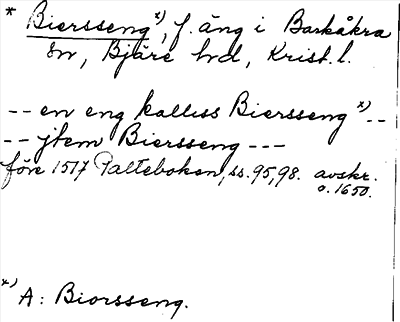 * Biersseng x), f. äng i Barkåkra
sn, Bjäre hd, Krist. l.
-- en eng kalliss Biersseng x) --
-- jtem Biersseng ---
före 1517 Palteboken, ss. 95, 98. avskr.
o. 1650.
x) A: Biorsseng.